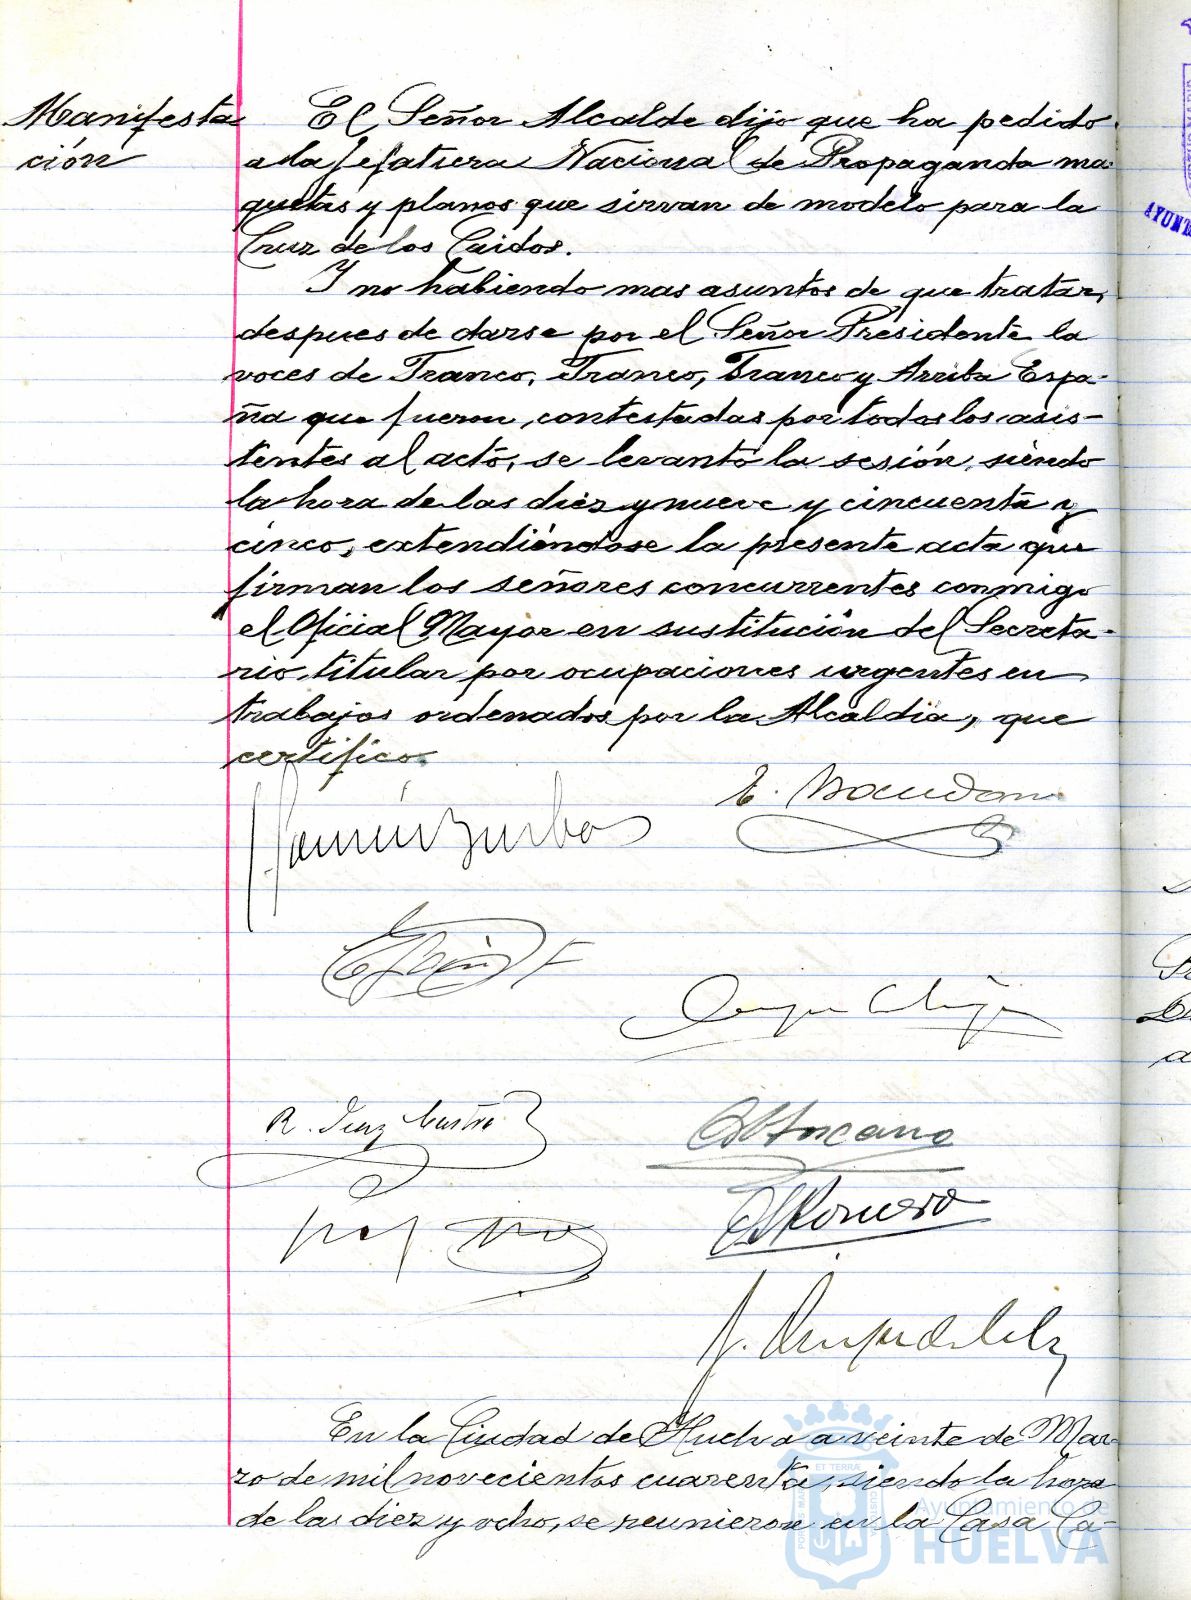 Manifesta-
ción
El Señor Alcalde dijo que ha pedido
a la Jefatura Nacional de Propaganda ma-
quetas y planos que sirvan de modelo para la
Cruz de los Caidos.
Y no habiendo mas asuntos de que tratar,
despues de darse por el Señor Presidente la
voces de Franco, Franco, Franco y Arriba Espa-
ña que fueron, contestadas por todos los asis-
tentes al acto, se levantó la sesión, siendo
la hora de las diez y nueve y cincuenta y
cinco, extendiéndose la presente acta que
firman los señores concurrentes conmigo
el Oficial Mayor en sustitución del Secreta-
rio titular por ocupaciones urgentes en
trabajos ordenados por la Alcaldía, que
certifico.
R. Diaz Castro
Toscano
Romero
En la Ciudad de Huelva a veinte de Mar-
zo de mil novecientos cuarenta, siendo la hora
de las diez y ocho, se reunieron en la Casa Ca-
Ayuntamiento de
HUELVA
AYUNT